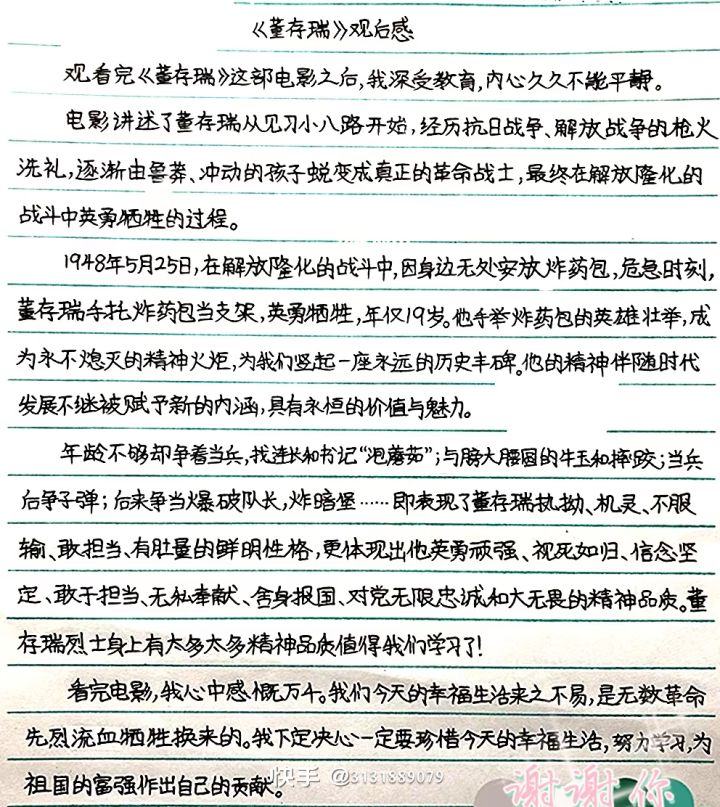 《董存瑞》观后感
观看完《董存瑞》这部电影之后,我深受教育,内心久久不能平静。
电影讲述了董存瑞从见习小八路开始,经历抗日战争、解放战争的枪火
洗礼,逐渐由鲁莽、冲动的孩子蜕变成真正的革命战士,最终在解放隆化的
战斗中英勇牺牲的过程。
1948年5月25日,在解放隆化的战斗中,因身边无处安放炸药包,危急时刻,
董存瑞手托炸药包当支架,英勇牺牲,年仅19岁。他手举炸药包的英雄壮举,成
为永不熄灭的精神火炬,为我们竖起一座永远的历史丰碑。他的精神伴随时代
发展不继被赋予新的内涵,具有永恒的价值与魅力。
年龄不够却争着当兵,找连长和书记“泡蘑菇”;与膀大腰圆的牛玉和摔跤;当兵
后争子弹;后来争当爆破队长,炸暗堡……即表现了董存瑞执拗、机灵、不服
输、敢担当、有肚量的鲜明性格,更体现出他英勇顽强、视死如归、信念坚
定、敢于担当、无私奉献、舍身报国、对党无限忠诚和大无畏的精神品质。董
存瑞烈士身上有太多太多精神品质值得我们学习了!
看完电影,我心中感慨万千。我们今天的幸福生活来之不易,是无数革命
先烈流血牺牲换来的。我下定决心一定要珍惜今天的幸福生活,努力学习,为
祖国的富强作出自己的贡献。
快手 @3131889079
谢谢你